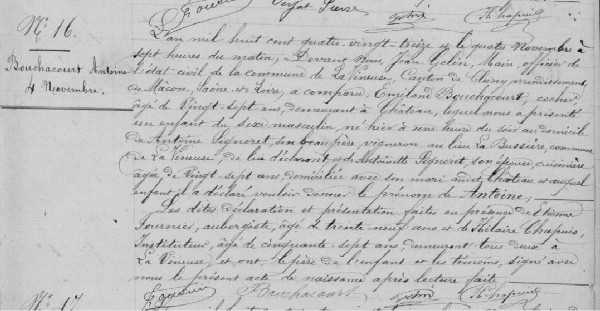 N° 16.
Bouchacourt Antoine
4 Novembre.
L'an mil huit cent quatre-vingt-treize et le quatre Novembre à
sept heures du matin; Devant Nous, Jean Gelin, Maire, officier de
l'état civil de la commune de La Vineuse, Canton de Cluny, arrondissement
de Mâcon, Saône et Loire; a comparu Emiland Bouchacourt, cocher,
âgé de Vingt-sept ans, demeurant à Château, lequel nous a présenté
un enfant du sexe masculin, né hier à onze heures du soir au domicile
de Antoine Signoret, son beau-père, vigneron au lieu La Bussière, commune
de La Vineuse, de lui déclarant et de Antoinette Signoret, son épouse, cuisinière
âgée de Vingt-sept ans, domiciliée avec son mari audit Château et auquel
enfant il a déclaré vouloir donner le prénom de Antoine;
Les dites déclaration et présentation faites en présence de Etienne
Fournier, aubergiste, âgé de trente neuf ans et de Hilaire Chapuis,
Instituteur, âgé de cinquante-sept ans, demeurant tous deux à
La Vineuse; et ont, le père de l'enfant et les témoins, signé avec
nous le présent acte de naissance après lecture faite.
Bouchacourt Gelin H. Chapuis
N° 17